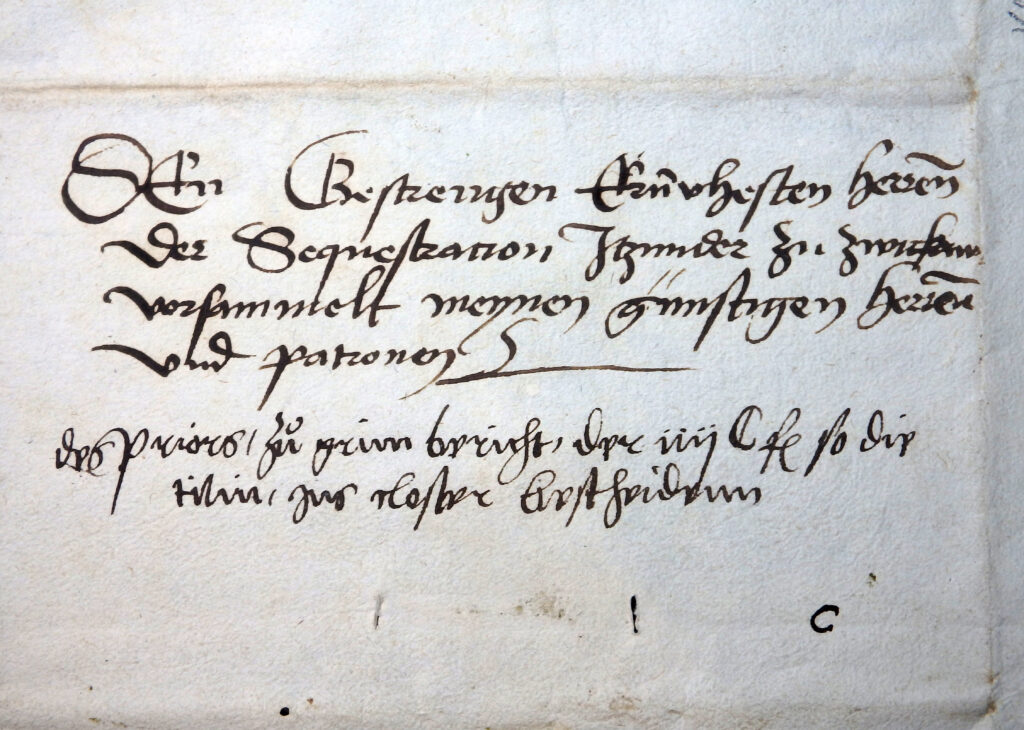 DEn Gestrengen Ernvhesten herren
der Sequestration Itzunder zu zwickaw
vorsammelt meynen gunstigen herren
vnd patronen
des priors zu grim bericht der iiij C fl so die
ins closter bescheidenn
C